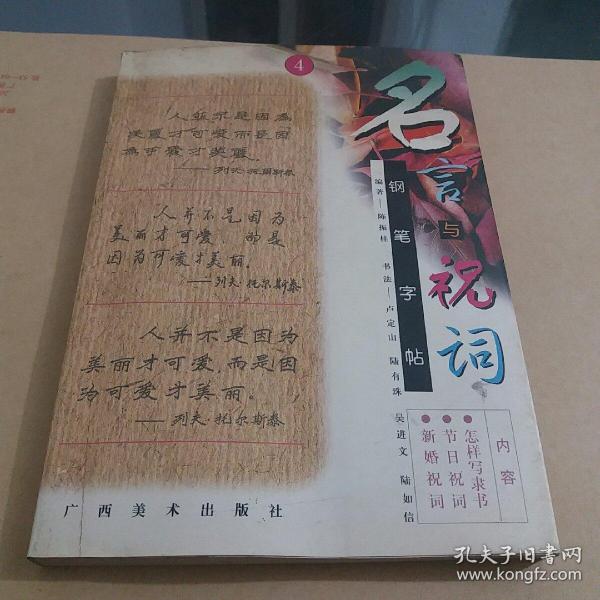 4
人並不是因為
美麗才可愛而是因
為可愛才美麗。
——列夫·托爾斯泰
人并不是因为
美丽才可爱，而是
因为可爱才美丽。
——列夫·托尔斯泰
人并不是因为
美丽才可爱，而是因
为可爱才美丽。
——列夫·托尔斯泰
名言与祝词
钢笔字帖
编著——陈振桂 书法——卢定山 陆有珠 吴进文 陆如信
内容
●怎样写隶书
●节日祝词
●新婚祝词
广西美术出版社
孔夫子旧书网
www.kongfz.com